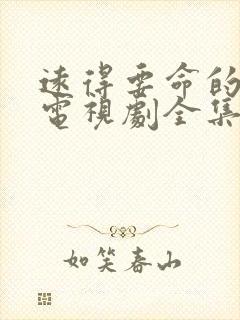 遠得要命的
電視劇全集
如笑春山